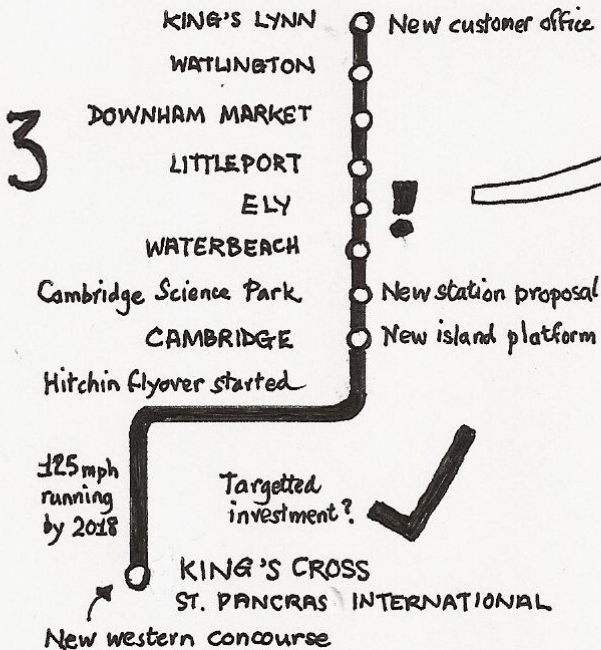 KING'S LYNN New customer office
WATLINGTON
3
DOWNHAM MARKET
LITTLEPORT
ELY !
WATERBEACH
Cambridge Science Park New station proposal
CAMBRIDGE New island platform
Hitchin flyover started
125mph
running
by 2018
Targetted
investment?
KING'S CROSS
ST. PANCRAS INTERNATIONAL
New western concourse